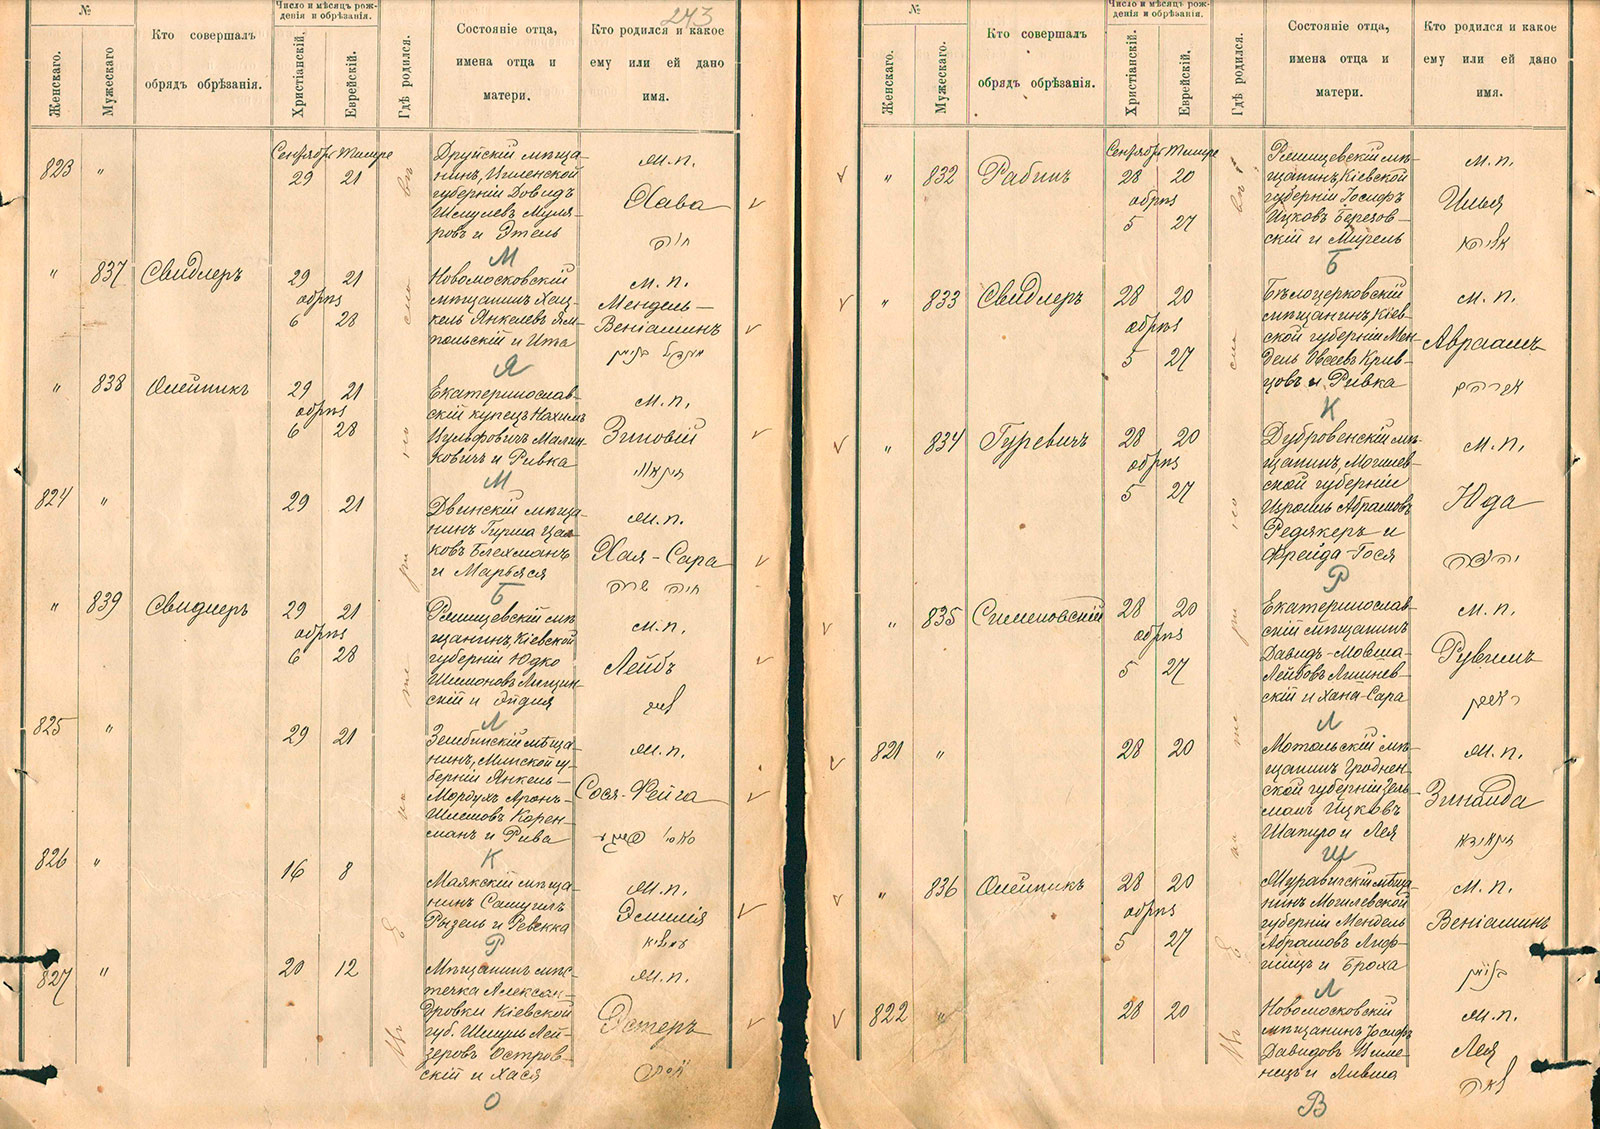 243
№
Женскаго.
Мужескаго
Кто совершалъ
обрядъ обрѣзанія.
Число и мѣсяцъ рож-
денія и обрѣзанія.
Христіанскій.
Еврейскій.
Гдѣ родился.
Состояніе отца,
имена отца и
матери.
Кто родился и какое
ему или ей дано
имя.
Сентябрь Тишре
823 " 29 21
Друйскій мѣща-
нинъ, Виленской
губерніи Довидъ
Шмулевъ Муля-
ровъ и Этель
М
м.п.
Хава
חוה
" 837 Свидлеръ 29 21
обрѣз
6 28
Новомосковскій
мѣщанинъ Хац-
кель Янкелевъ Ям-
польскій и Ита
Я
м.п.
Мендель-
Веніаминъ
" 838 Олейникъ 29 21
обрѣз
6 28
Екатеринослав-
скій купецъ Нахимъ
Вульфовичъ Малин-
ковичъ и Ривка
М
м.п.
Зиновій
824 " 29 21
Двинскій мѣща-
нинъ Гирша Цал-
ковъ Блехманъ
и Марьяся
Б
м.п.
Хая-Сара
חיה שרה
" 839 Свидлеръ 29 21
обрѣз
6 28
Ржищевскій мѣ-
щанинъ, Кіевской
губерніи Юдко
Шимоновъ
скій и
Л
м.п.
Лейбъ
825 " 29 21
Зембинскій мѣща-
нинъ, Минской гу-
берніи Янкель-
Мордухъ Аронъ-
Шлемовъ Корен-
манъ и Рива
К
м.п.
Сося-Фейга
826 " 16 8
Маякскій мѣща-
нинъ Самуилъ
Рызель и Ревекка
Р
м.п.
Эмилія
827 " 20 12
Мѣщанинъ мѣс-
течка Алексан-
дровки Кіевской
губ. Шмуль Лей-
зеровъ Остров-
скій и Хася
О
м.п.
Эстеръ
№
Женскаго.
Мужескаго.
Кто совершалъ
обрядъ обрѣзанія.
Число и мѣсяцъ рож-
денія и обрѣзанія.
Христіанскій.
Еврейскій.
Гдѣ родился.
Состояніе отца,
имена отца и
матери.
Кто родился и какое
ему или ей дано
имя.
Сентябрь Тишре
" 832 Рабинъ 28 20
обрѣз
5 27
Ржищевскій мѣ-
щанинъ Кіевской
губерніи Іосифъ
Ицковъ Березов-
скій и Мирель
Б
м.п.
Илья
" 833 Свидлеръ 28 20
обрѣз
5 27
Бѣлоцерковскій
мѣщанинъ, Кіев-
ской губерніи Мен-
дель Овсеевъ Крив-
цовъ и Ривка
К
м.п.
Авраамъ
אברהם
" 834 Гуревичъ 28 20
обрѣз
5 27
Дубровенскій мѣ-
щанинъ, Могилев-
ской губерніи
Израиль Абрамовъ
Редякеръ и
Фрейда-Гося
Р
м.п.
Юда
יהודה
" 835 Сименовскій 28 20
обрѣз
5 27
Екатеринослав-
скій мѣщанинъ
Давидъ-Мовша-
Лейбовъ Лишнев-
скій и Хана-Сара
Л
м.п.
Рувимъ
ראובן
821 " 28 20
Мотольскій мѣ-
щанинъ Гроднен-
ской губерніи Зель-
манъ Ицковъ
Шапиро и Лея
Ш
м.п.
Зинаида
" 836 Олейникъ 28 20
обрѣз
5 27
Журавичскій мѣща-
нинъ Могилевской
губерніи Мендель
Абрамовъ Лиф-
шицъ и Броха
Л
м.п.
Веніаминъ
822 " 28 20
Новомосковскій
мѣщанинъ Іосифъ
Давидовъ
и
В
м.п.
Лея
לאה